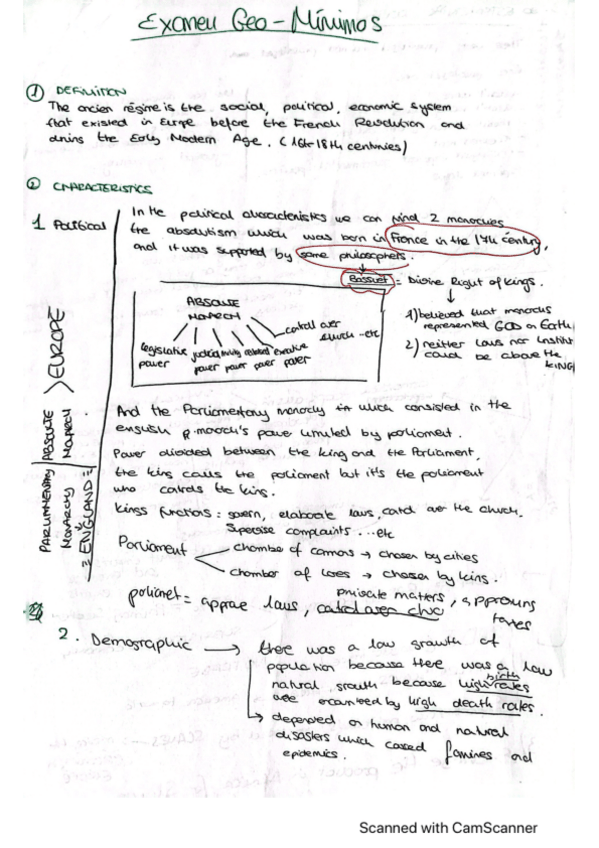 Examen Geo - Mínimos
① DEFINITION
The ancien régime is the social, political, economic system
that existed in Europe before the French Revolution and
during the Early Modern Age. (16-18th centuries)
② CHARACTERISTICS
1 Political
In the political characteristics we can find 2 monarchies
the absolutism which was born in France in the 17th century,
and it was supported by some philosophers.
Bossuet = Divine Right of kings.
1) believed that monarchs
represented GOD on Earth
2) neither laws nor instit
could be above the
KING
ABSOLUTE
MONARCH
control over
church -etc
legislative judicial executive
power power power power power
ABSOLUTE
MONARCH
> EUROPE
And the Parliamentary monarchy which consisted in the
english monarch's power limited by parliament.
Power divided between the king and the Parliament,
the king calls the parliament but it's the parliament
who controls the king.
Kings functions: govern, elaborate laws, control over the church.
Supervise complaints ...etc
PARLIAMENTARY
MONARCHY
= ENGLAND =
Parliament
chamber of commons → chosen by cities
chamber of → chosen by kings.
= approve laws, matters, approving
taxes
2. Demographic → there was a low growth of
population because there was a low
natural growth because high birth rates
are by high death rates.
↳ depended on human and natural
disasters which caused famines and
epidemics.
Scanned with CamScanner